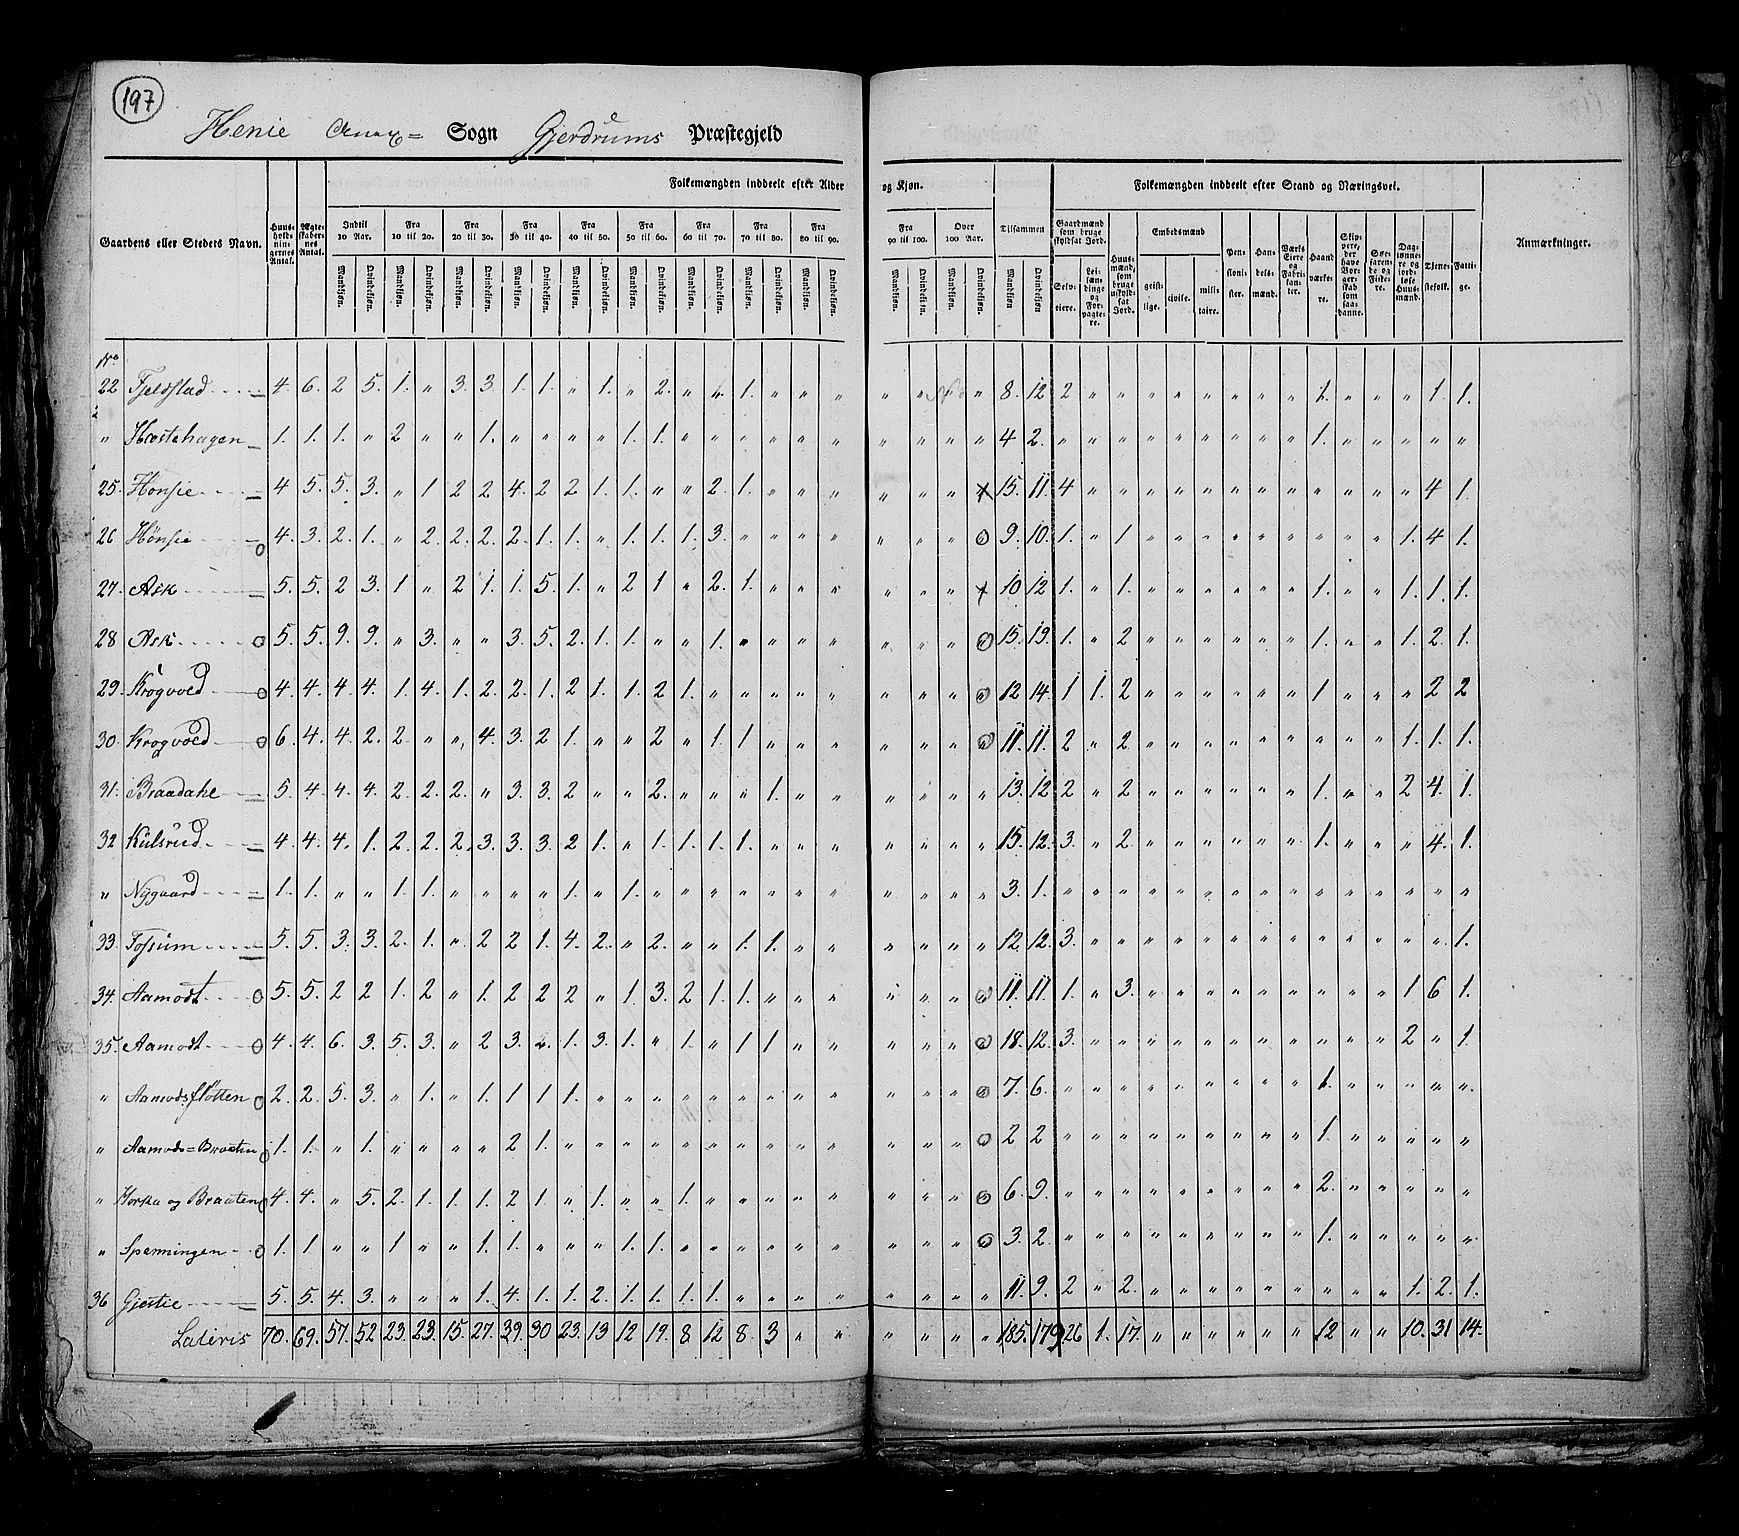 197
Henie Annex= Sogn Gjerdrums Præstegjeld
Folkemængden inddeelt efter Alder og Kjøn. Folkemængden inddeelt efter Stand og Næringsvei.
Gaardens eller Stedets Navn. Huusholdningernes Antal. Ægteskabernes Antal. Indtil 10 Aar. Fra 10 til 20. Fra 20 til 30. Fra 30 til 40. Fra 40 til 50. Fra 50 til 60. Fra 60 til 70. Fra 70 til 80. Fra 80 til 90. Fra 90 til 100. Over 100 Aar. Tilsammen Gaardmænd som bruge skyldsat Jord. Huusmænd, som bruge uskyldsat Jord. Embedsmænd Pensionister. Handelsmænd. Værks Eiere og Fabrikanter. Haandværkere. Skippere, der have Borgerskab som saadanne. Søefarende og Fiskere. Daglønnere og jordløse Huusmænd. Tjenestefolk. Fattige. Anmærkninger.
Mandkjøn. Qvindekjøn. Mandkjøn. Qvindekjøn. Mandkjøn. Qvindekjøn. Mandkjøn. Qvindekjøn. Mandkjøn. Qvindekjøn. Mandkjøn. Qvindekjøn. Mandkjøn. Qvindekjøn. Mandkjøn. Qvindekjøn. Mandkjøn. Qvindekjøn. Mandkjøn. Qvindekjøn. Mandkjøn. Qvindekjøn. Mandkjøn Qvindekjøn Selveiere. Leilændinge og Forpagtere. geistlige. civile. militaire.
No
22 Fjeldstad 4. 6. 2 5. 1. " 3. 3. 1. 1. " 1. " 2. " " 1. " " " " " " " 8. 12 2 " " " " " " " " 1. " " " 1. 1.
" Hæstehagen 1. 1. 1. " 2 " " 1. " " " " 1. 1. " " " " " " " " " " 4 2. " " " " " " " " " 1. " " " " "
25. Hønsie 4 5. 5. 3. " 1 2 2 4. 2 2 1. 1. " " 2. 1. " " " " " " 15. 11. 4 " " " " " " " " " " " " 4 1.
26 Hønsie 4. 3. 2. 1. " 2. 2. 2. 2. 1. 1. " 1. 1. 1. 3. " " " " " " " " 9. 10. 1. " 1 " " " " " " " " " 1. 4 1.
27. Ask 5. 5. 2 3. 1 " 2 1. 1. 5. 1. " 2 1 " 2. 1. " " " " " " 10 12 1. " 1. " " " " " " 1. " " 1. 1. 1.
28 Ask 5. 5. 9. 9. " 3. " " 3. 5. 2. 1. 1. " " 1. " " " " " " " " 15. 19. 1. " 2 " " " " " " 1. " " 1. 2. 1.
29. Krogvold 4. 4. 4. 4. 1. 4. 1. 2. 2. 1. 2 1. 1. 2 1. " " " " " " " " " 12 14. 1 1. 2 " " " " " " 1. " " " 2 2
30. Krogvold 6. 4. 4. 2. 2. " " 4. 3. 2 1. " " 2 " 1. 1 " " " " " " " 11. 11. 2 " 2 " " " " " " " " " 1. 1. 1.
31. Braadahe 5. 4. 4. 4. 2. 2. 2. " 3. 3. 2 " " 2. " " " 1. " " " " " " 13. 12 2 " 2 " " " " " " 1. " " 2 4. 1.
32 Kulsrud 4. 4. 4. 1. 2. 2. 2. 3. 3. 3. 2 1. " 1. 1. 1. 1. " " " " " " " 15. 12. 3. " 2. " " " " " " 1. " " " 4. 1.
" Nygaard 1. 1. " " 1. 1. " " " " 1. " 1. " " " " " " " " " " " 3. 1. " " " " " " " " " " " " " " "
33. Fossum 5. 5. 3. 3. 2. 1. " 2 2 1. 4. 2. " 2. " " 1. 1. " " " " " " 12. 12. 3. " " " " " " " " " " " " " 1.
34. Aamodt 5. 5. 2 2 1. 2 " 1. 2 2 2 " 1. 3. 2 1. 1. " " " " " " " 11. 11. 1. " 3. " " " " " " " " " 1 6 1.
35. Aamodt 4. 4. 6. 3. 5. 3. " 2 3. " 1. 3. 1. " 1. " 1 1 " " " " " " 18. 12. 3. " " " " " " " " " " " 2 " 1.
" Aamodsfløtten 2. 2. 5. 3. " 1. " 1. 1 1 1. " " " " " " " " " " " " " 7. 6. " " " " " " " " " 1. " " " " "
" Aamods=Braaten 1. 1. " 1. " " " " 2 1. " " " " " " " " " " " " " " 2 2 " " " " " " " " " 1. " " " " "
" Horka og Braaten 4. 4. " 5. 2. 1. 1. 1. 2 1. " 1. " " 1. " " " " " " " " " 6. 9. " " " " " " " " " 2. " " " " "
" Spenningen 1. 1 " " 1 " " 1. 1. " " " 1. 1. " " " " " " " " " " 3. 2. " " " " " " " " " 1. " " " " "
36 Gjestie 5. 5. 4. 3. " " " 1. 4. 1. 1. 2. 1. 1. 1. 1. " " " " " " " " 11. 9. 2 " 2. " " " " " " " " " 1. 2. 1.
Lateris 70. 69. 57. 52 23. 23. 15. 27. 39. 30 23. 13 12 19. 8 12 8. 3 " " " " " " 185. 179 26 1. 17. " " " " " " 12 " " 10. 31 14.